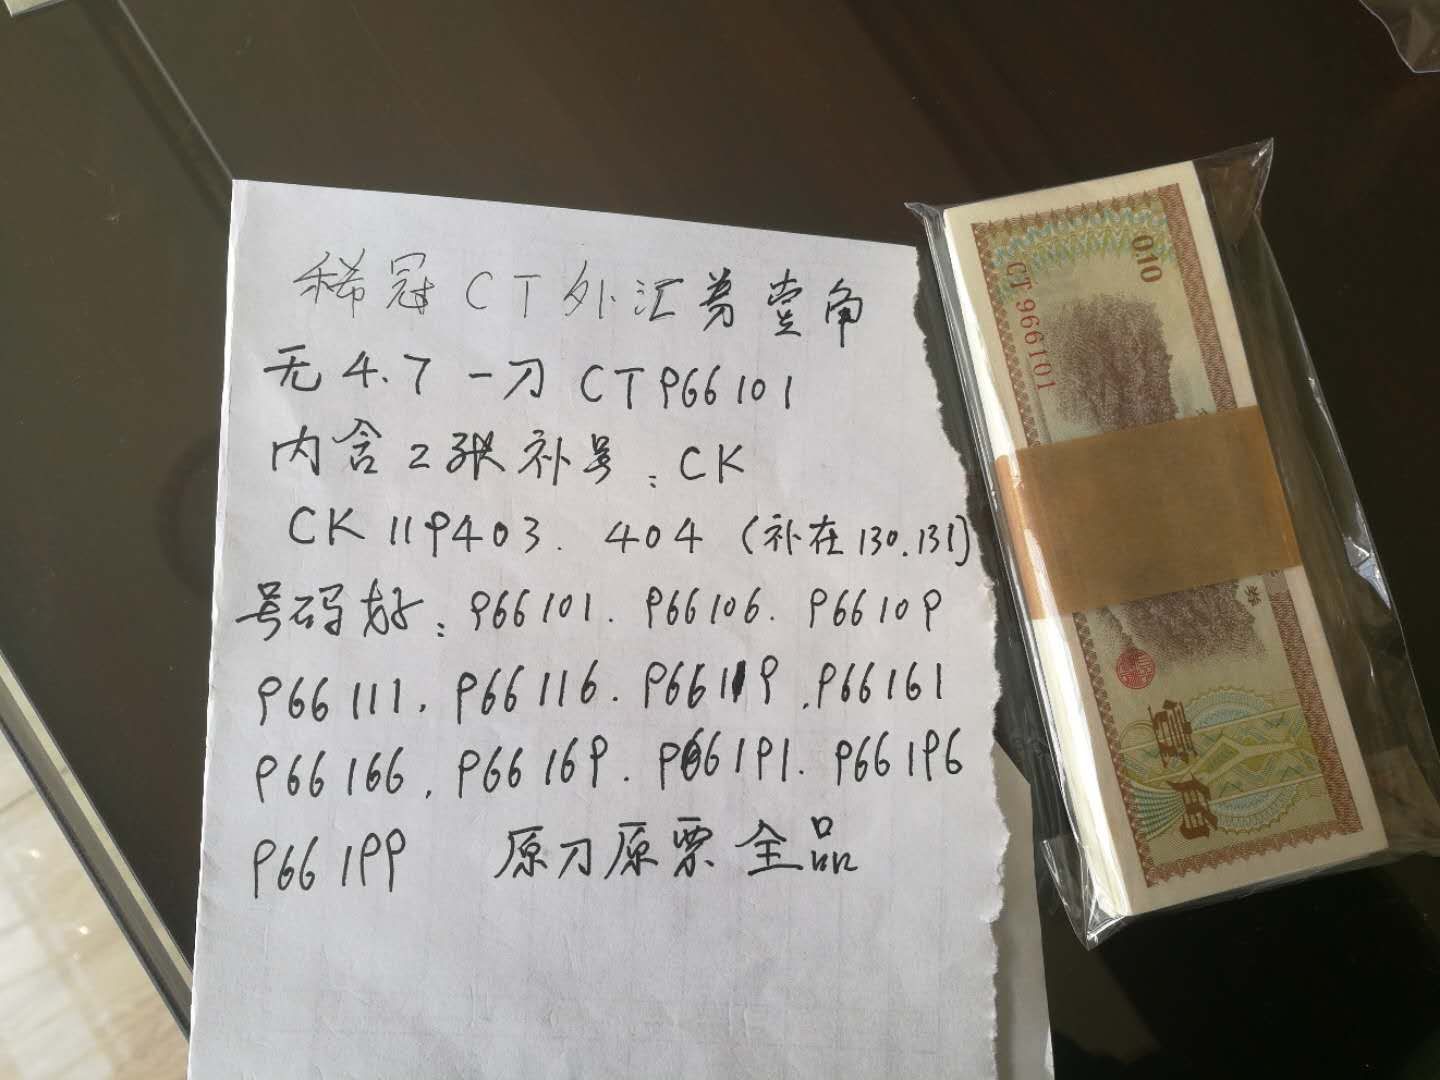 稀冠CT外汇券壹角
无4.7一刀CT966101
内含2张补号:CK
CK119403.404(补在130.131)
号码好:966101.966106.966109
966111.966116.966119.966161
966166.966169.966191.966196
966199 原刀原票全品
0.10
CT966101
券
壹角